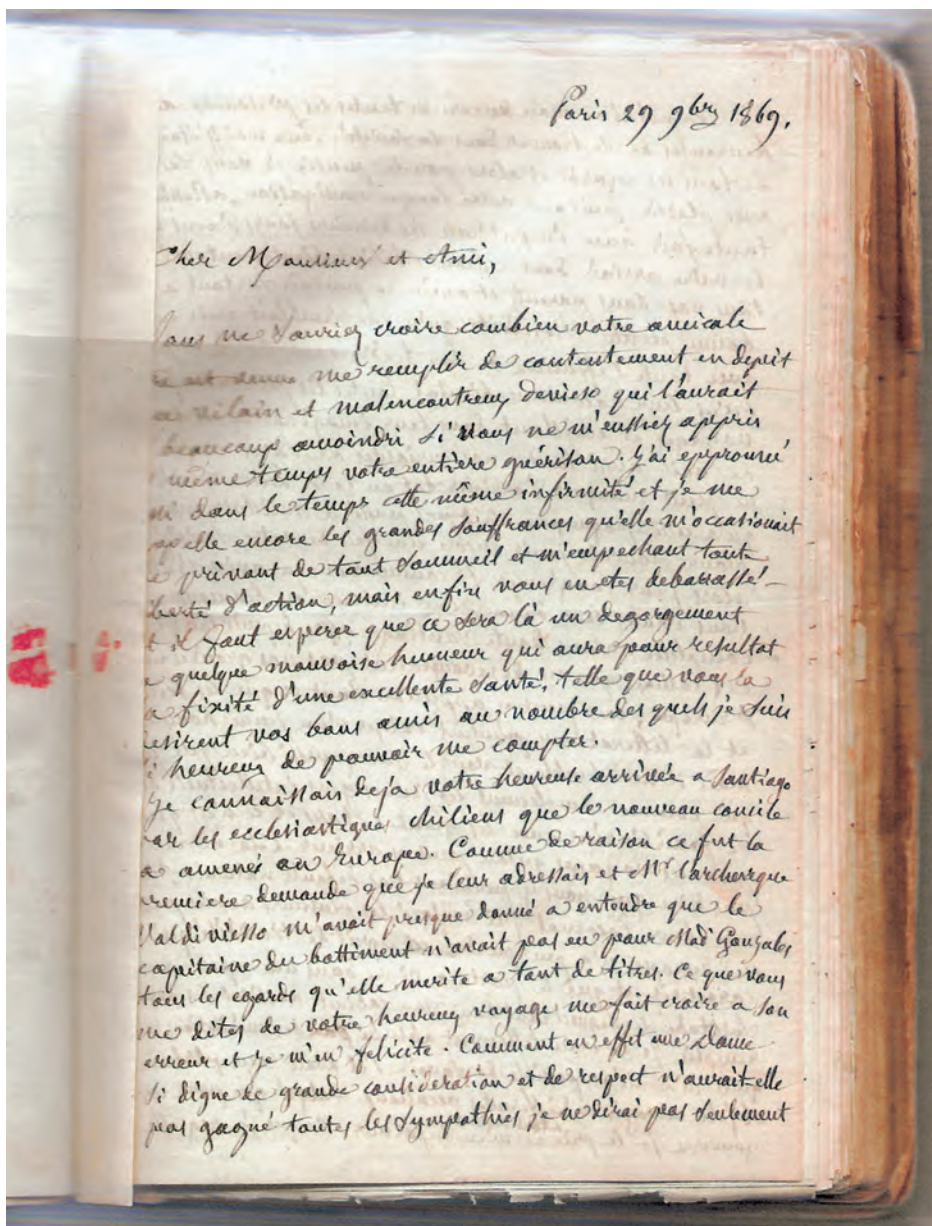 Paris 29 9bre 1869.
Cher Monsieur et Ami,
Vous ne sauriez croire combien votre amicale
est venue me remplir de contentement en depit
vilain et malencontreux qui l'aurait
beaucoup amoindri si vous ne m'eussiez appris
même temps votre entière guérison. J'ai epprouvé
dans le temps cette même infirmité et je me
appelle encore les grandes souffrances qu'elle m'occasionait
privant de tout sommeil et m'empechant toute
liberté d'action, mais enfin vous en etes debarassé –
et il faut esperer que ce sera là un degorgement
quelque mauvaise humeur qui aura pour resultat
la fixité d'une excellente santé, telle que vous la
desirent vos bons amis au nombre des quels je suis
si heureux de pouvoir me compter.
Je connaissais deja votre heureuse arrivée a Santiago
par les ecclesiastiques chiliens que le nouveau concile
a amenés en Europe. Comme de raison ce fut la
premiere demande que je leur adressais et Mr l'archeveque
Valdiviesso m'avait presque donné a entendre que le
capitaine du battiment n'avait pas eu pour Mad Gonzales
tous les egards qu'elle merite a tant de titres. Ce que vous
me dites de votre heureux voyage me fait croire a son
erreur et je m'en felicite. Comment en effet une Dame
si digne de grande consideration et de respect n'aurait-elle
pas gagné toutes les sympathies, je ne dirai pas seulement